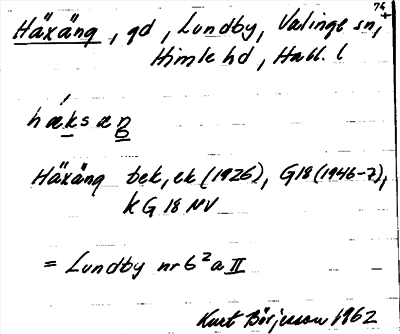 76
Häxäng, gd, Lundby, Valinge sn,
Himle hd, Hall. l
hæksæŋ
Häxäng bek, ek (1926), G18 (1946-7),
KG 18 NV
= Lundby nr 6²a II
Kurt Börjesson 1962